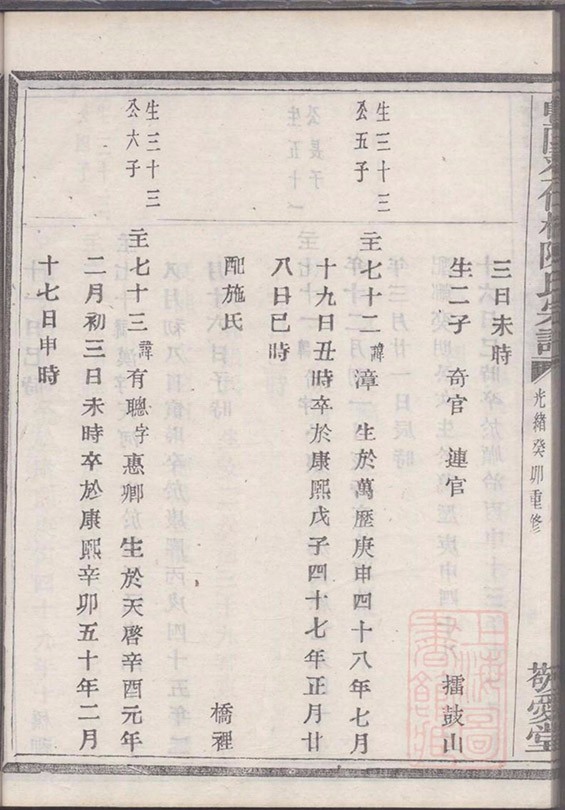 陳氏宗譜
光緒癸卯重修
敬愛堂
三日未時
生二子 奇官 璉官 擂鼓山
生三十三
公五子
主七十二諱漳 生於萬歷庚申四十八年七月
十九日丑時卒於康熙戊子四十七年正月廿
八日巳時
配施氏 橋裡
生三十三
公六子
主七十三諱有聰字惠卿 生於天啓辛酉元年
二月初三日未時卒於康熙辛卯五十年二月
十七日申時